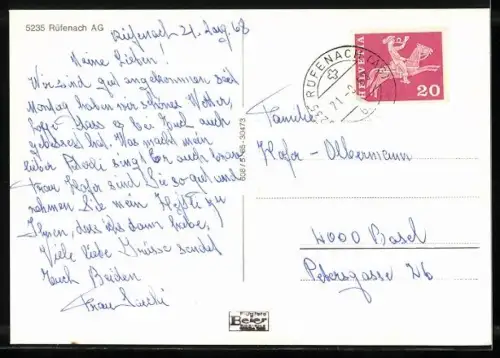 5235 Rüfenach AG
Rüfenach 21. Aug 68
Meine Lieben!
Wir sind gut angekommen seit
Montag haben wir schönes Wetter,
hoffe dass es bei Euch auch
gebessert hat. Was macht mein
lieber singt Er auch brav
Frau Hofer sind Sie so gut und
nehmen Sie mein zu
Ihnen, dass ich's dann habe,
Viele liebe Grüsse sendet
Euch Beiden
Frau
608/5235-30473
RÜFENACH (AG)
5235
21.-8
HELVETIA
20
Familie
Hofer-Olbermann
4000 Basel
Petersgasse 26
Beier